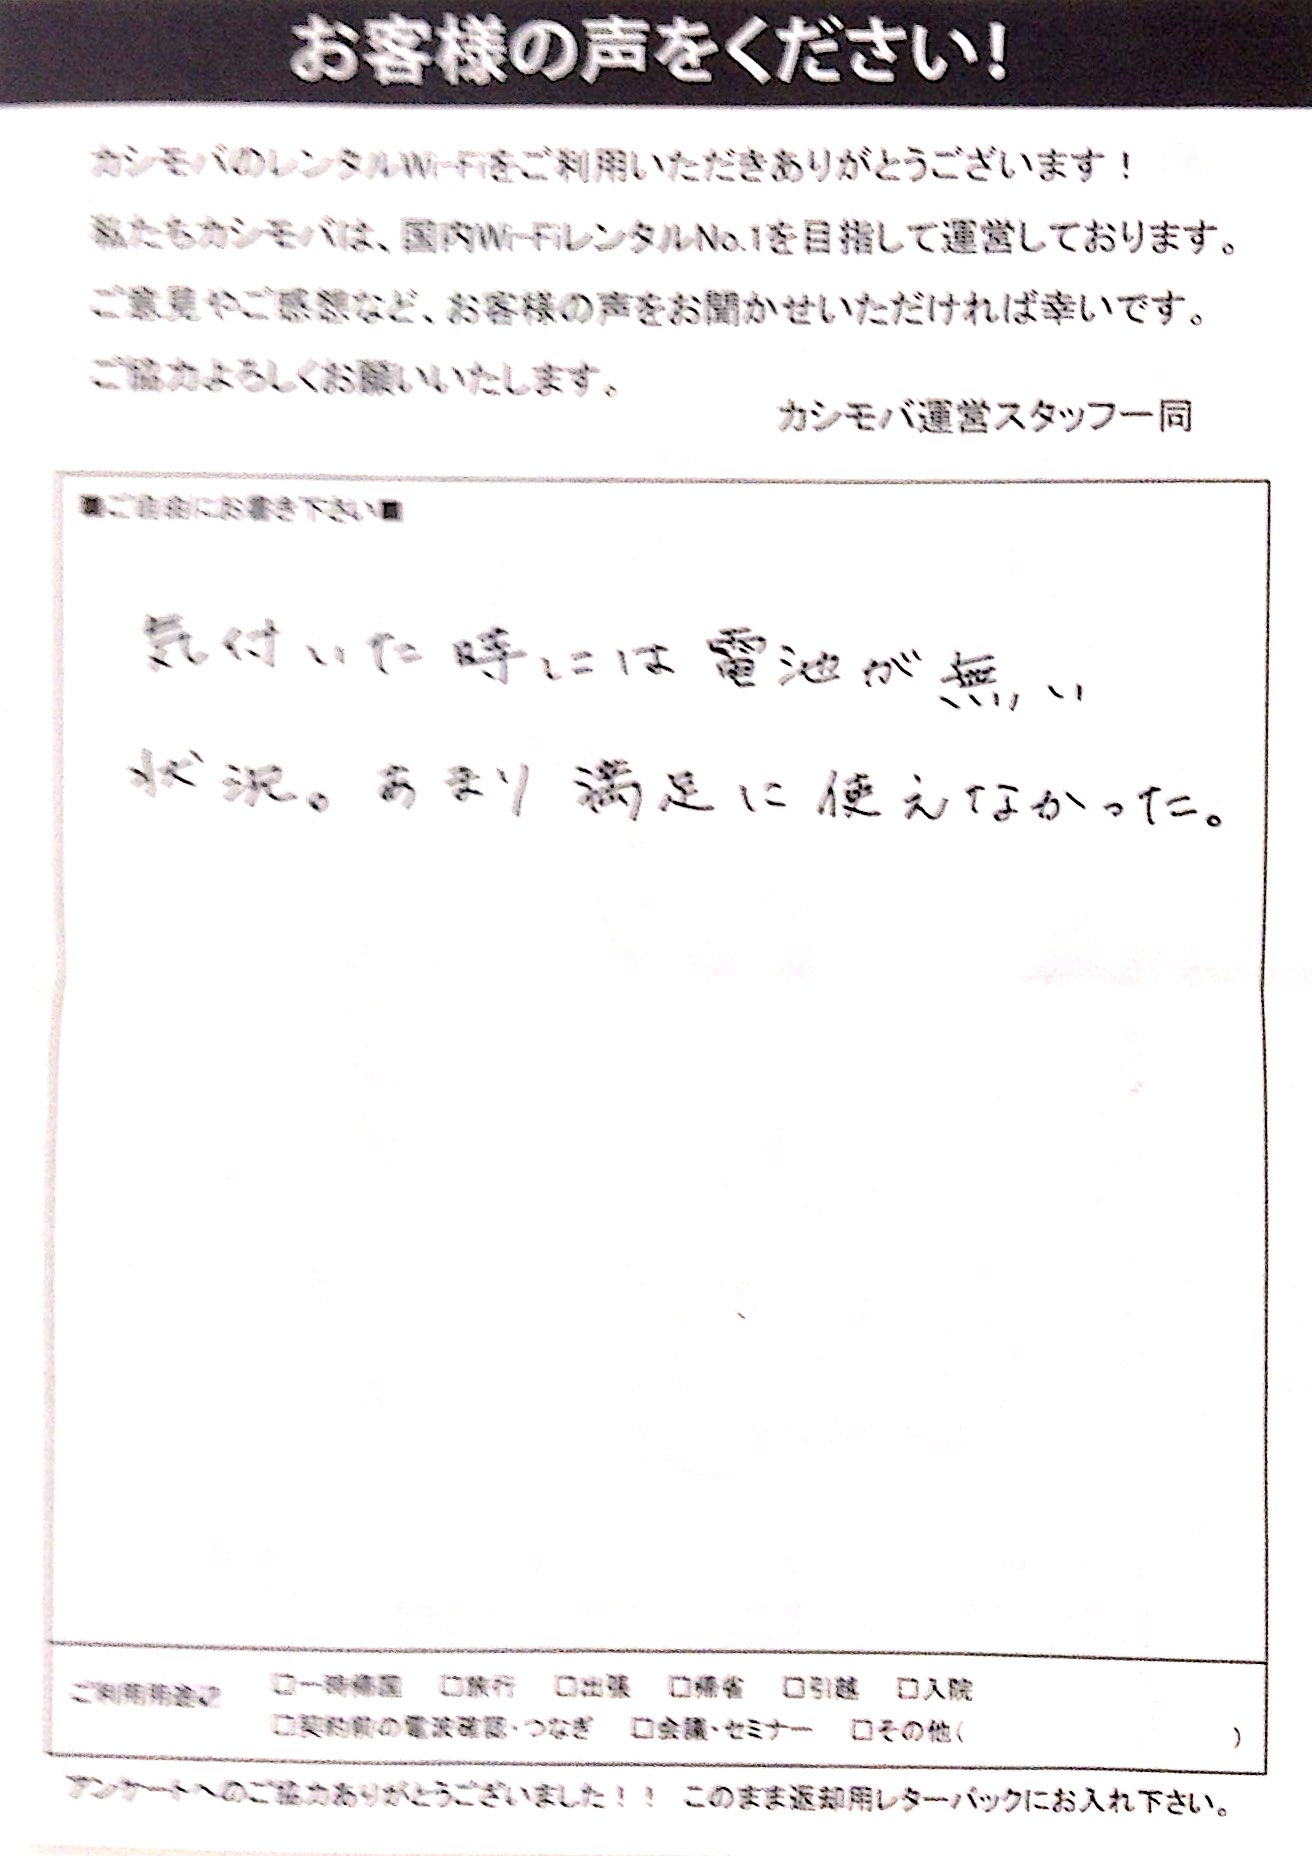 お客様の声をください!
カシモバのレンタルWi-Fiをご利用いただきありがとうございます！
私たちカシモバは、国内Wi-FiレンタルNo.1を目指して運営しております。
ご意見やご感想など、お客様の声をお聞かせいただければ幸いです。
ご協力よろしくお願いいたします。
カシモバ運営スタッフ一同
■ご自由にお書き下さい■
気付いた時には電池が無い
状況。あまり満足に使えなかった。
ご利用用途 □一時帰国 □旅行 □出張 □帰省 □引越 □入院
□契約前の電波確認・つなぎ □会議・セミナー □その他( )
アンケートへのご協力ありがとうございました！！ このまま返却用レターパックにお入れ下さい。